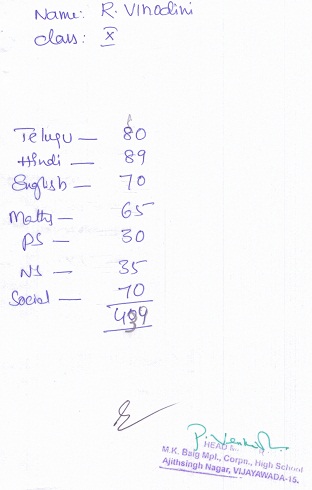 Name: R. Vinodini
class: X
Telugu — 80
Hindi — 89
English — 70
Maths — 65
PS — 30
NS — 35
Social — 70
439
HEAD
M.K. Baig Mpl., Corpn., High School
Ajithsingh Nagar, VIJAYAWADA-15.